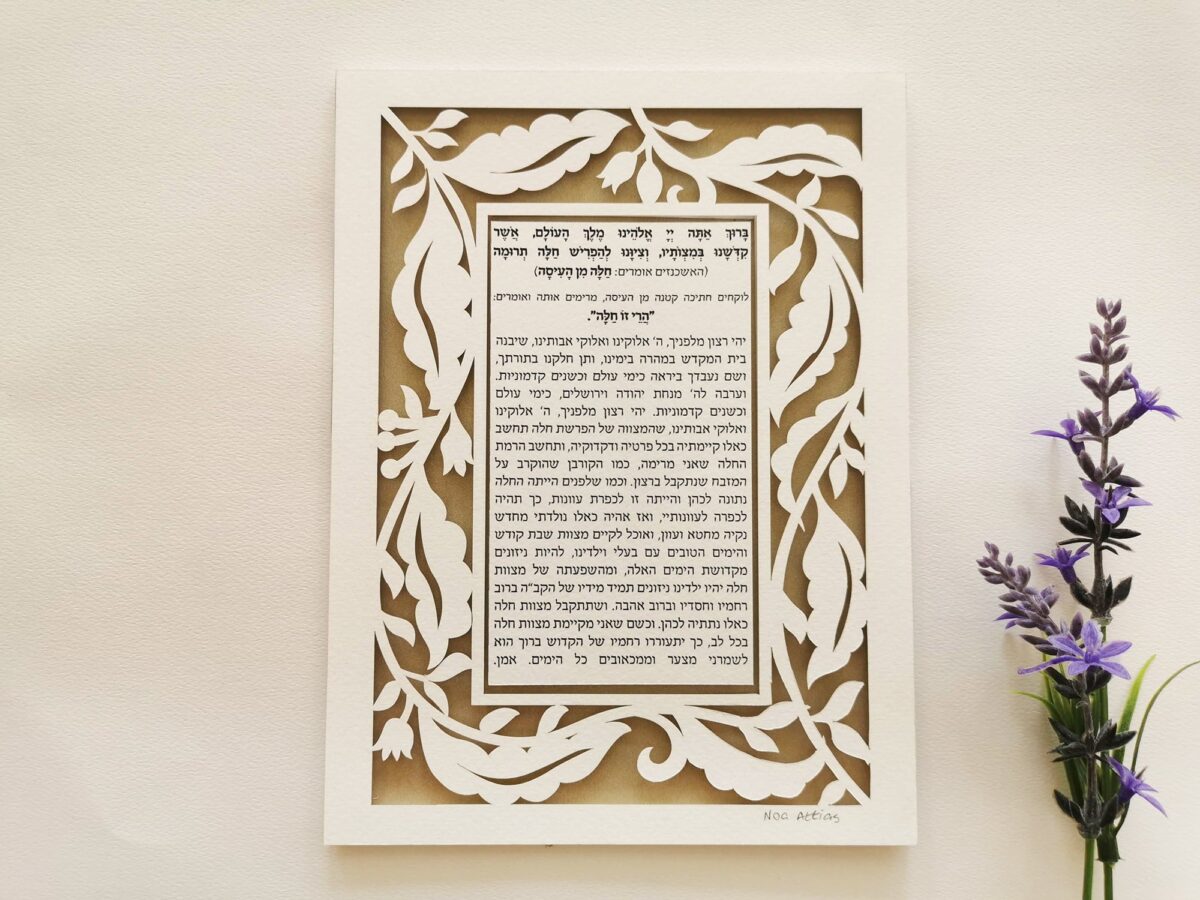 בָּרוּךְ אַתָּה יְיָ אֱלֹהֵינוּ מֶלֶךְ הָעוֹלָם, אֲשֶׁר
קִדְּשָׁנוּ בְּמִצְוֹתָיו, וְצִיוָּנוּ לְהַפְרִישׁ חַלָּה תְּרוּמָה
(האשכנזים אומרים: חַלָּה מִן הָעִיסָה)
לוקחים חתיכה קטנה מן העיסה, מרימים אותה ואומרים:
"הֲרֵי זוֹ חַלָּה".
יהי רצון מלפניך, ה' אלוקינו ואלוקי אבותינו, שיבנה
בית המקדש במהרה בימינו, ותן חלקנו בתורתך,
ושם נעבדך ביראה כימי עולם וכשנים קדמוניות.
וערבה לה' מנחת יהודה וירושלים, כימי עולם
וכשנים קדמוניות. יהי רצון מלפניך, ה' אלוקינו
ואלוקי אבותינו, שהמצווה של הפרשת חלה תחשב
כאלו קיימתיה בכל פרטיה ודקדוקיה, ותחשב הרמת
החלה שאני מרימה, כמו הקורבן שהוקרב על
המזבח שנתקבל ברצון. וכמו שלפנים הייתה החלה
נתונה לכהן והייתה זו לכפרת עוונות, כך תהיה
לכפרה לעוונותיי, ואז אהיה כאלו נולדתי מחדש
נקיה מחטא ועוון, ואוכל לקיים מצוות שבת קודש
והימים הטובים עם בעלי וילדינו, להיות ניזונים
מקדושת הימים האלה, ומהשפעתה של מצוות
חלה יהיו ילדינו ניזונים תמיד מידיו של הקב"ה ברוב
רחמיו וחסדיו וברוב אהבה. ושתתקבל מצוות חלה
כאלו נתתיה לכהן. וכשם שאני מקיימת מצוות חלה
בכל לב, כך יתעוררו רחמיו של הקדוש ברוך הוא
לשמרני מצער וממכאובים כל הימים. אמן.
Noa Attias